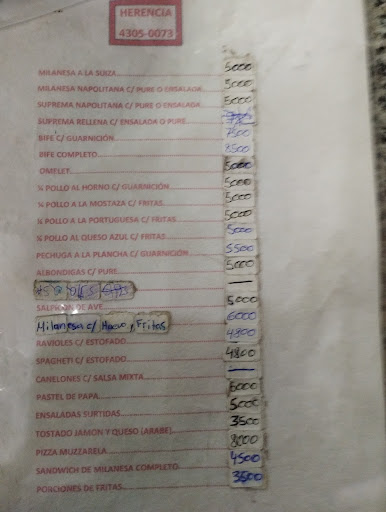 HERENCIA
4305-0073
MILANESA A LA SUIZA 5000
MILANESA NAPOLITANA C/ PURE O ENSALADA 5000
SUPREMA NAPOLITANA C/ PURE O ENSALADA 5000
SUPREMA RELLENA C/ ENSALADA O PURE
BIFE C/ GUARNICIÓN 7500
BIFE COMPLETO 8500
OMELET 5000
¼ POLLO AL HORNO C/ GUARNICIÓN 5000
¼ POLLO A LA MOSTAZA C/ FRITAS 5000
¼ POLLO A LA PORTUGUESA C/ FRITAS 5000
¼ POLLO AL QUESO AZUL C/ FRITAS 5000
PECHUGA A LA PLANCHA C/ GUARNICIÓN 5500
ALBONDIGAS C/ PURE 5000
—
SALPICON DE AVE 5000
Milanesa c/ Huevo, Fritas 6000
RAVIOLES C/ ESTOFADO 4800
SPAGHETI C/ ESTOFADO 4800
CANELONES C/ SALSA MIXTA —
PASTEL DE PAPA 6000
ENSALADAS SURTIDAS 5000
TOSTADO JAMON Y QUESO (ARABE) 3500
PIZZA MUZZARELA 8000
SANDWICH DE MILANESA COMPLETO 4500
PORCIONES DE FRITAS 3500